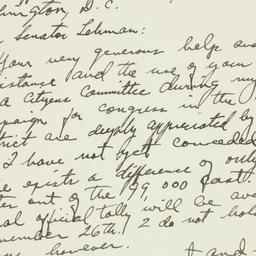 hington, D. C.
Senator Lehman:
Your very generous help and
istance and the use of your
a Citizens Committee during my
paign for congress in the
trict are deeply appreciated by
I have not yet conceded
re exists a difference of only
out of the 99,000 cast.
al official tally will be ava
vember 26th. I do not hold
however.
and